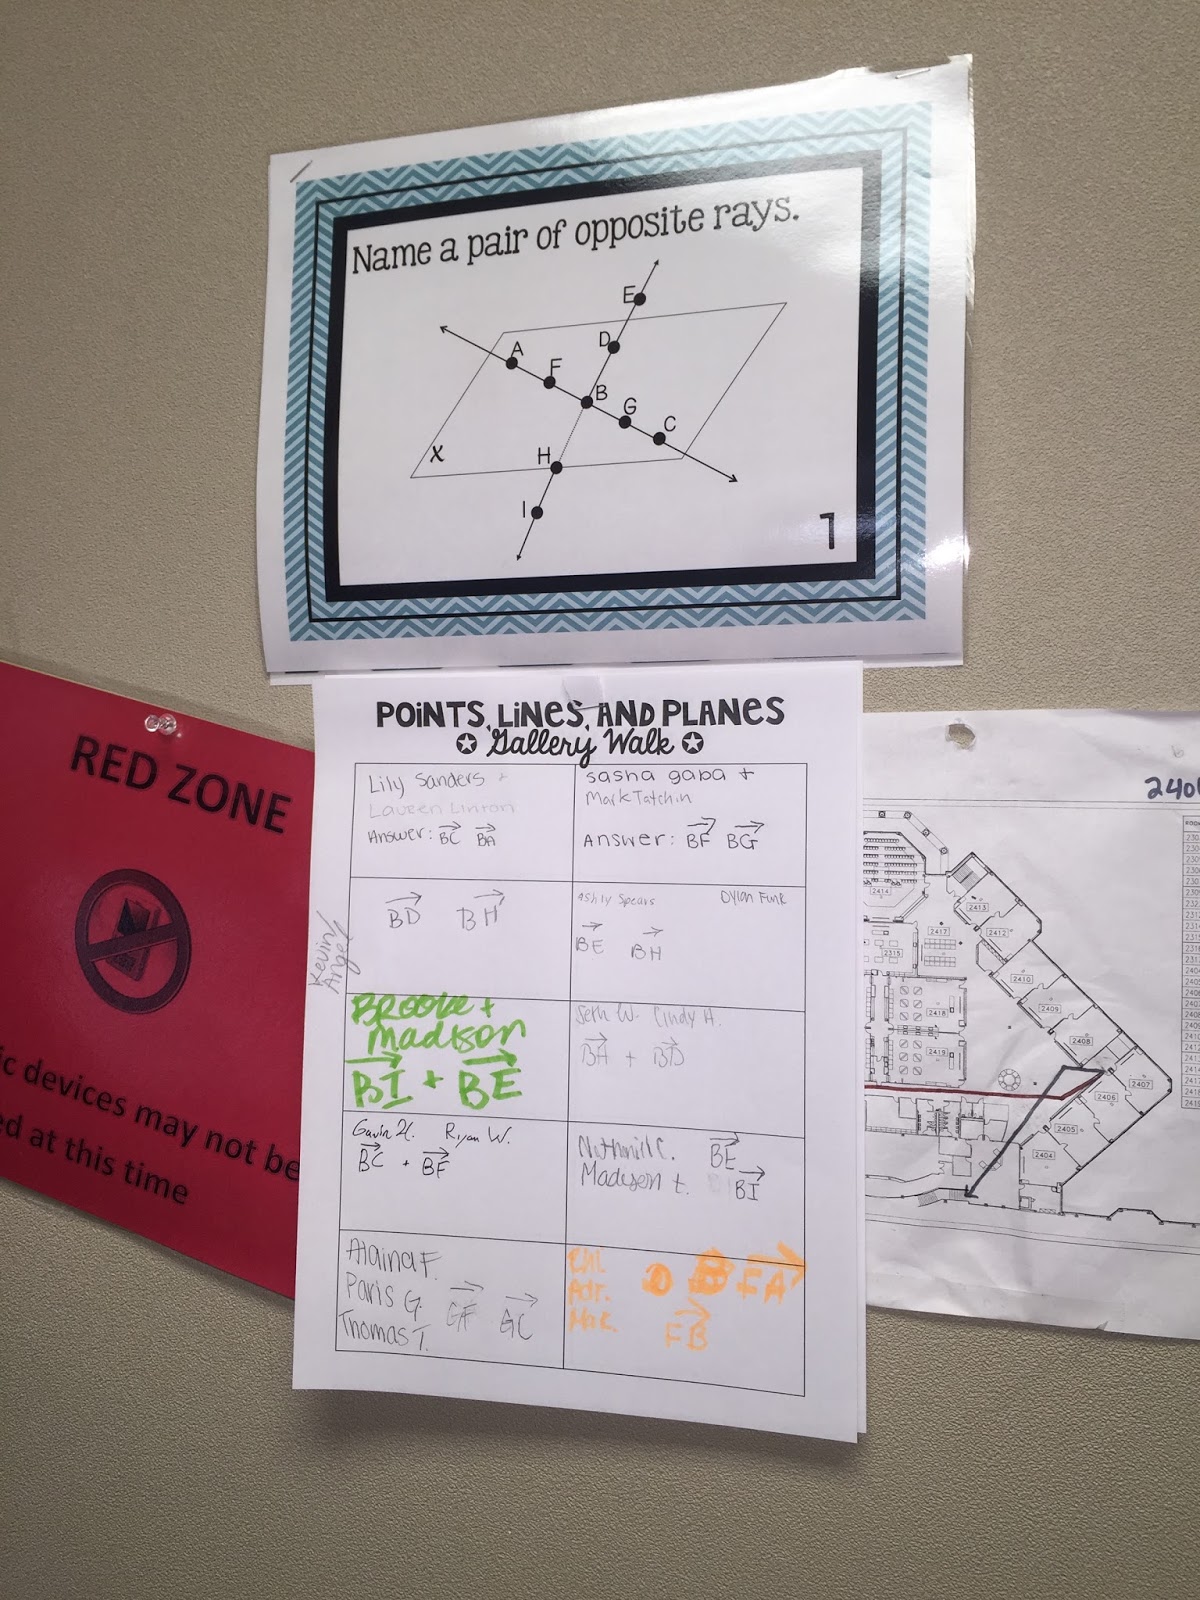 Name a pair of opposite rays.
E
D
A
F
B
G
C
H
X
I
1
POINTS, LINES, AND PLANES
Gallery Walk
Lily Sanders +
Lauren Linton
Answer: BC BA
Sasha gaba +
Mark Tatchin
Answer: BF BG
Kevin/
Angel
BD BH
Ashly Spears Dylan Funk
BE BH
Brooke +
Madison
BI + BE
Seth W. Cindy H.
BA + BD
Gavin H. Ryan W.
BC + BF
BE
Madison t. BI
Alaina F.
Paris G. GF GC
Thomas T.
EA
Adr.
FB
RED ZONE
ic devices may not be
ed at this time
2414
2413
2417
2412
2315
2410
2418
2409
2419
2408
2407
2406
2405
2404